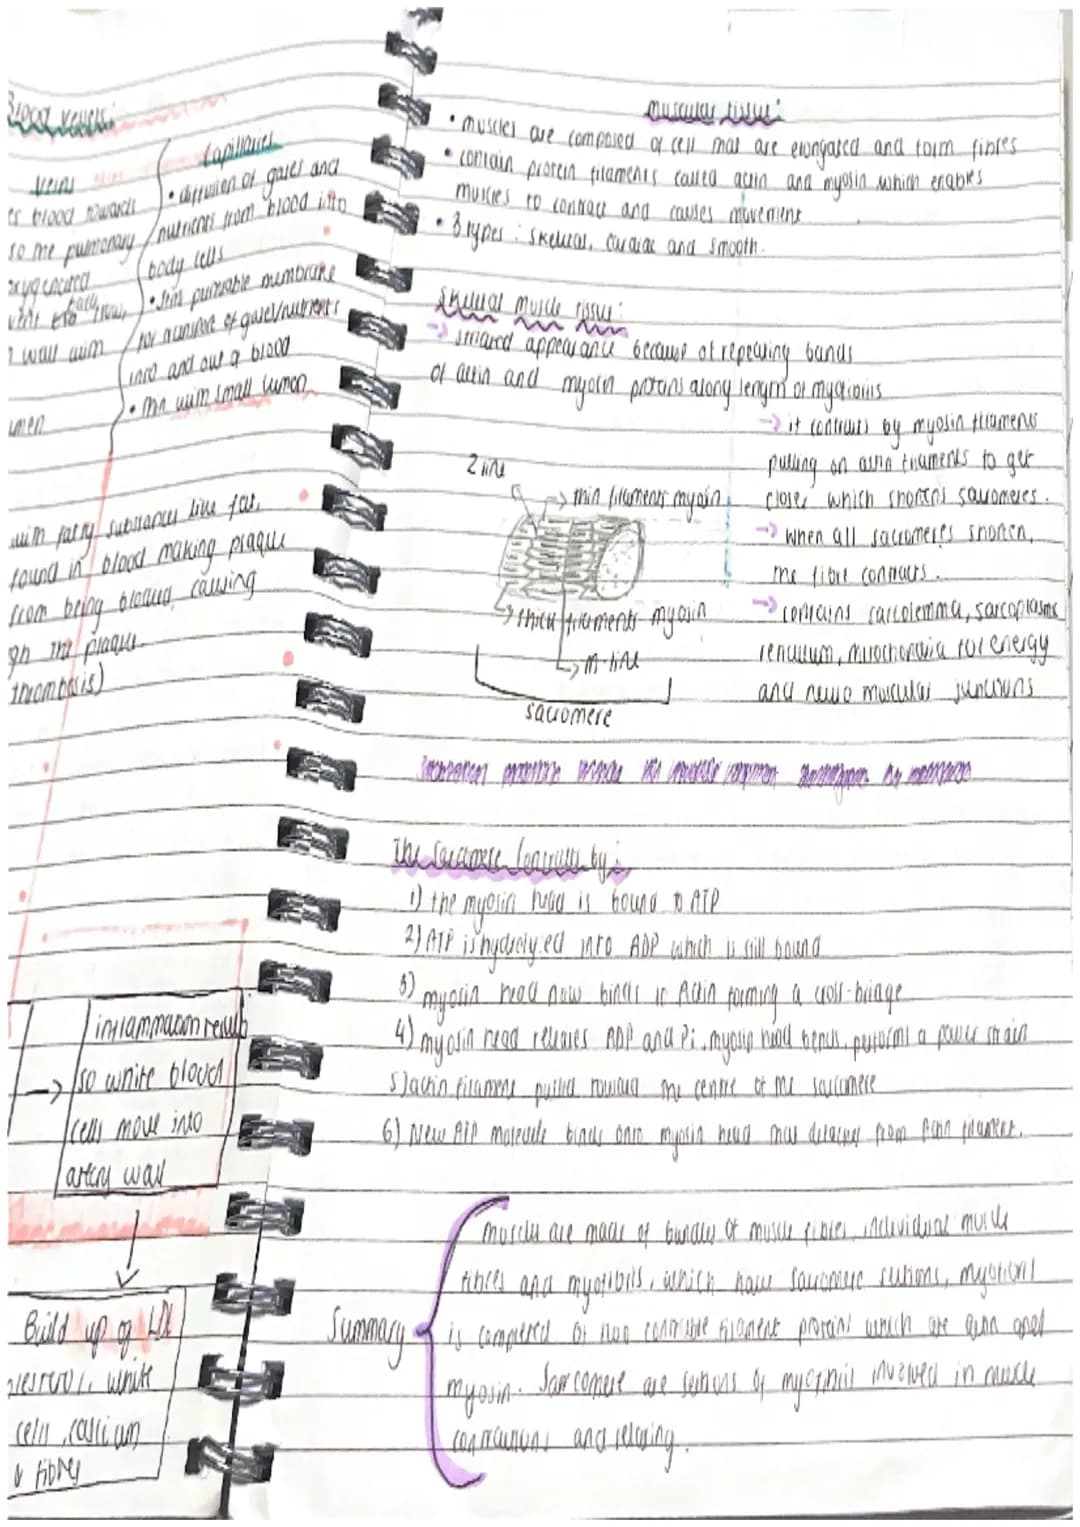 Blood vessels:
veins
es blood towards
so the pulmonary
oxygenated
back flow,
n wall with
umen
capillaries
• diffusion of gases and
nutrients from blood into
body cells
• Semi permeable membrane
for transport of gases/nutrients
into and out of blood
• thin with small lumen
with fatty substances like fat,
found in blood making plaque
from being blocked, causing
gh the plaque.
thrombosis)
inflammation results
so white blood
cells move into
artery wall
Build up of LDL
olesterol, white
cells, calcium
& fibres
muscular tissue:
• muscles are composed of cell that are elongated and form fibres
• contain protein filaments called actin and myosin which enables
muscles to contract and causes movement
• 3 types: skeletal, cardiac and smooth.
Skeletal muscle tissue:
→ striated appearance because of repeating bands
of actin and myosin proteins along length of myofibrils
→ it contracts by myosin filaments
pulling on actin filaments to get
closer which shortens sacromeres.
→ When all sacromeres shorten,
the fibre contracts.
→ contains sarcolemma, sarcoplasmic
reticulum, mitochondria for energy
and neuro muscular junctions
Z line
→ thin filaments myosin
→ thick filaments myosin
→ m-line
sacromere
The sacromere contracts by:
1) the myosin head is bound to ATP
2) ATP is hydrolyed into ADP which is still bound
3) myosin head now binds to Actin forming a cross-bridge
4) myosin head releases ADP and Pi, myosin head bends, performs a power strain
5) actin filament pulled toward the centre of the sarcomere
6) New ATP molecule binds onto myosin head that detaches from Actin filament.
Summary
muscles are made of bundles of muscle fibres, individual muscle
fibres and myofibrils, which have sarcomere sections, myofibril
is composed of two contractile filament proteins which are actin and
myosin. Sarcomere are sections of myofibril involved in muscle
contractions and relaxing.